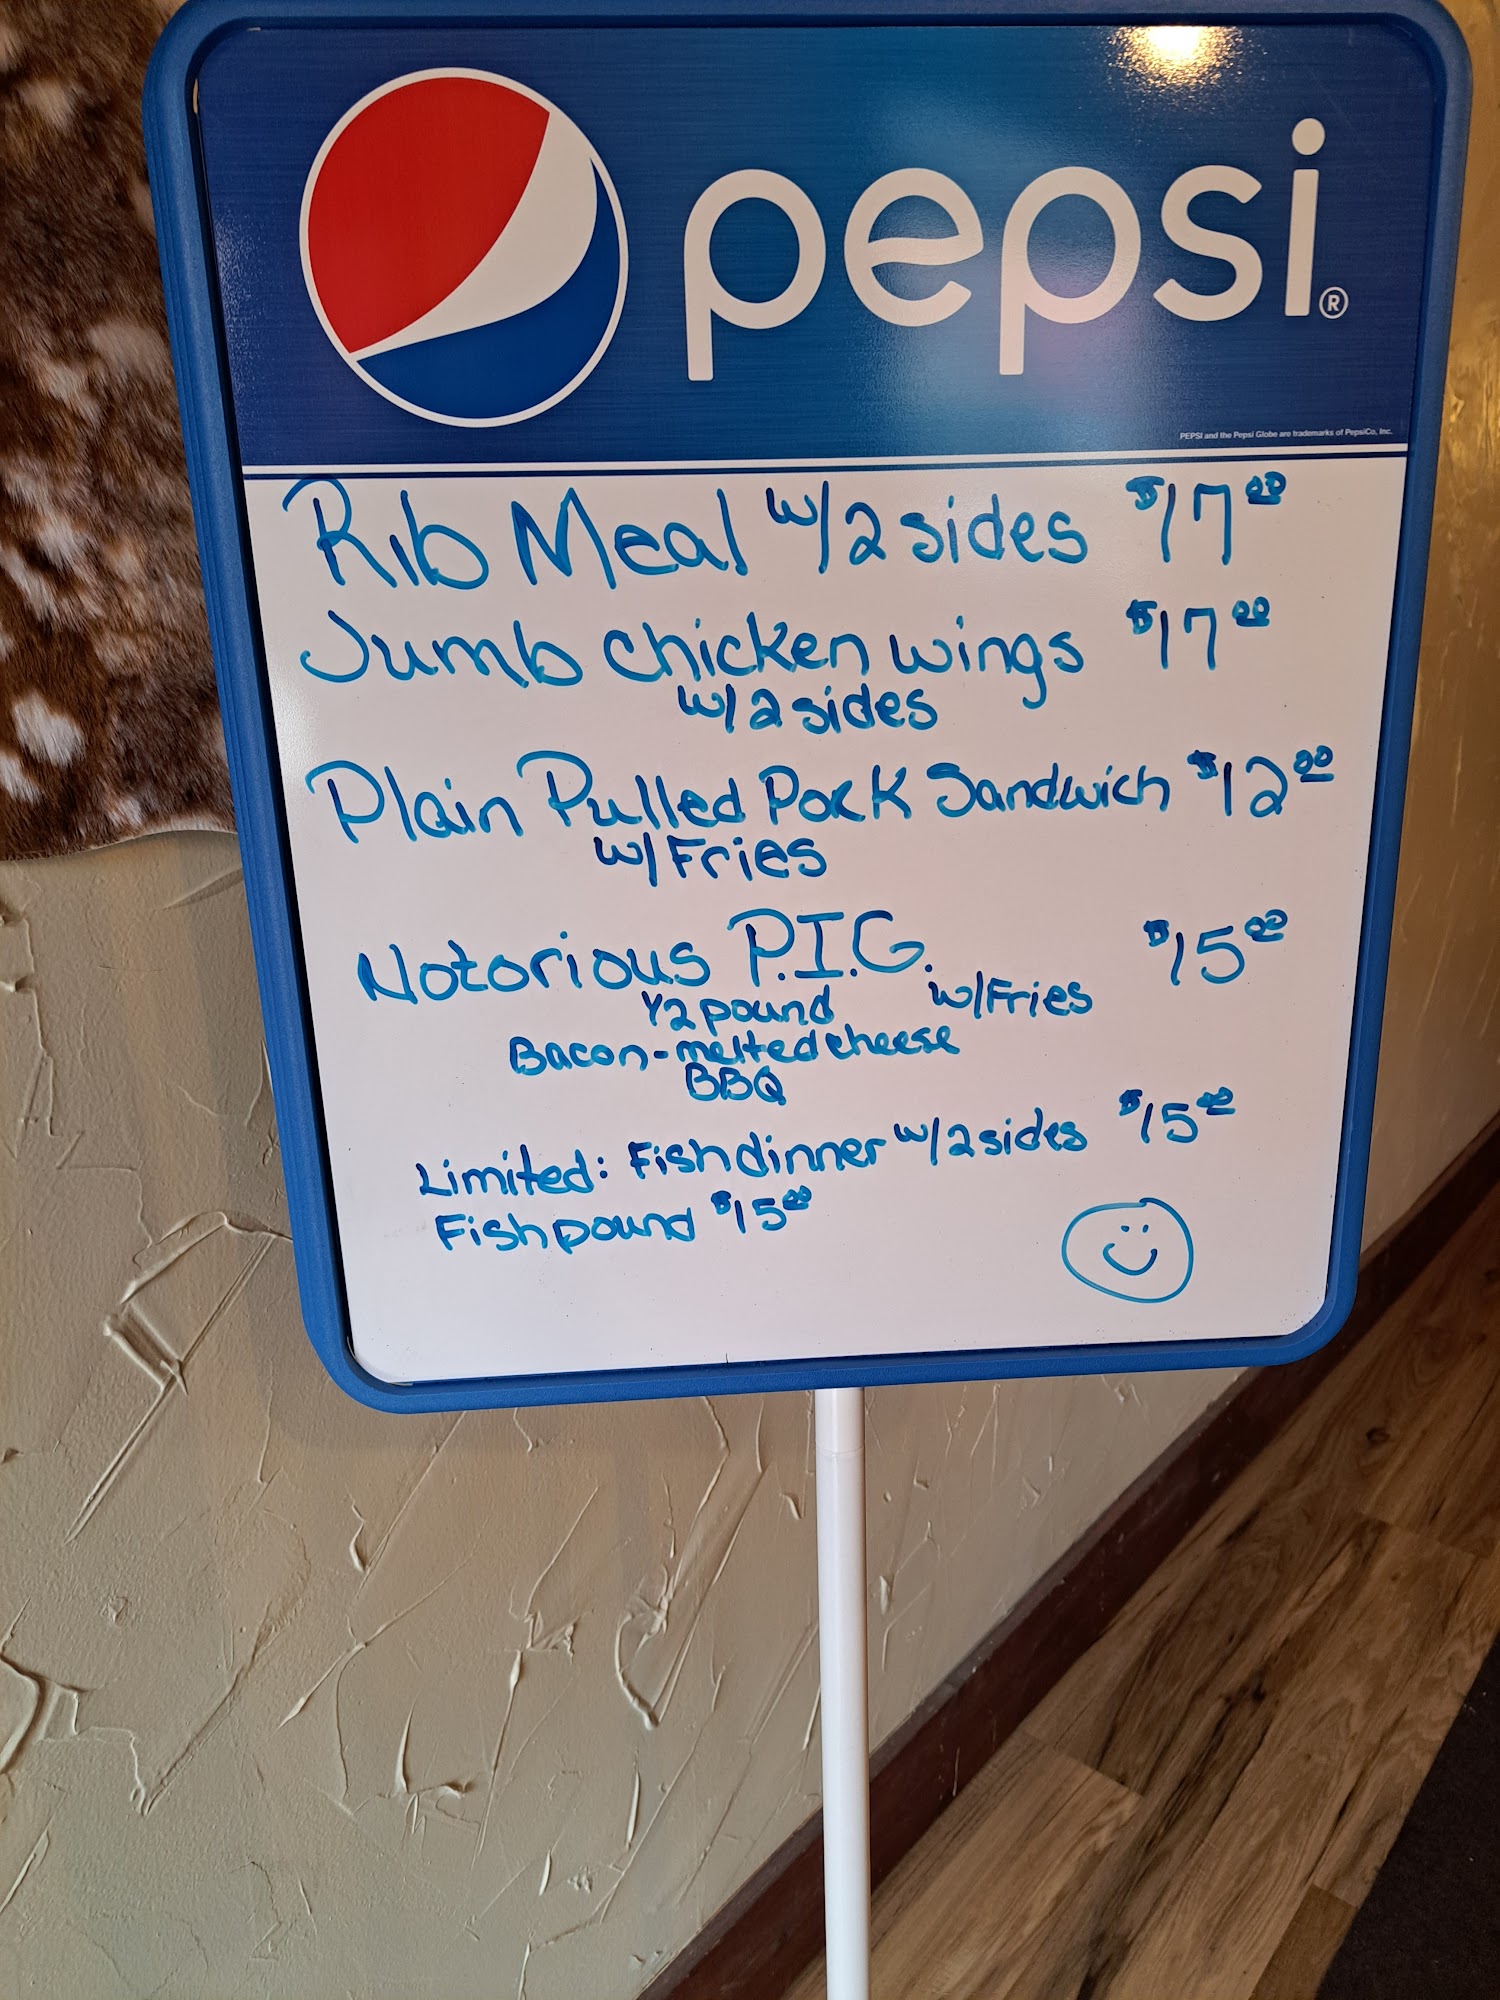 pepsi®
PEPSI and the Pepsi Globe are trademarks of PepsiCo, Inc.
Rib Meal w/2 sides $17.00
Jumb chicken wings $17.00
w/2 sides
Plain Pulled Pork Sandwich $12.00
w/Fries
Notorious P.I.G. $15.00
1/2 pound w/Fries
Bacon-melted cheese
BBQ
Limited: Fish dinner w/2 sides $15.00
Fish pound $15.00